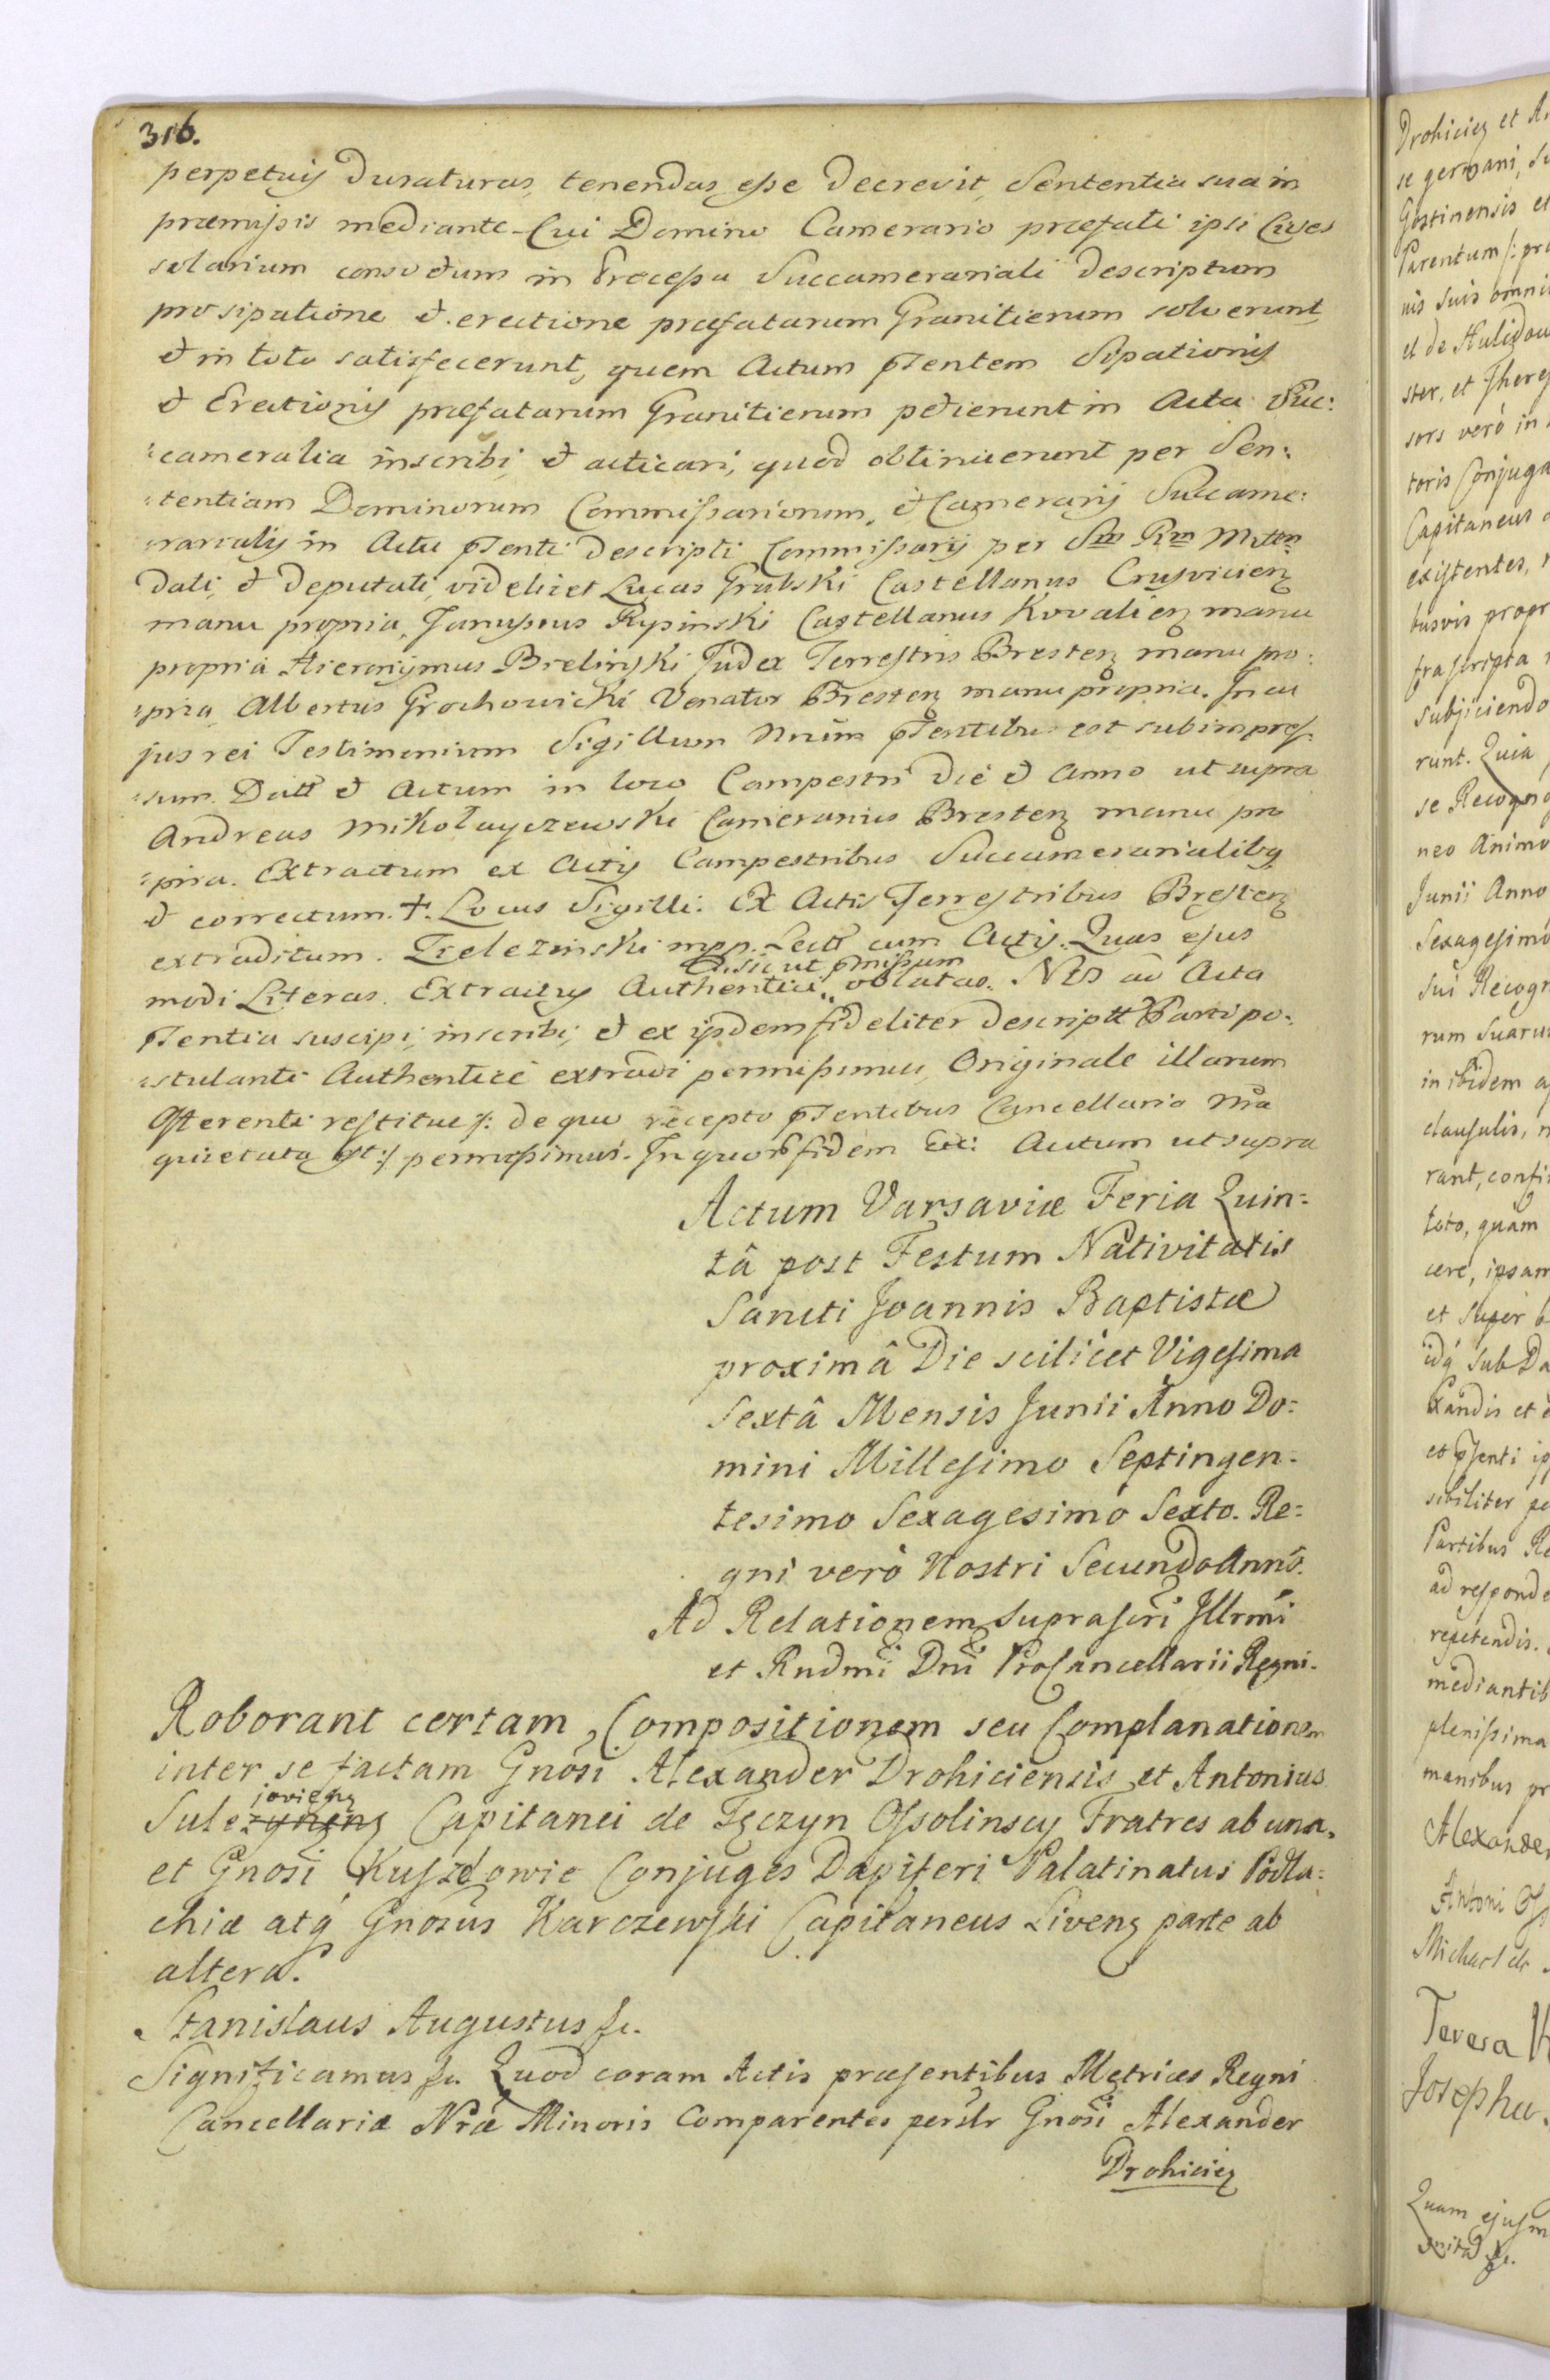 316.
perpetuis duraturas, tenendas esse decrevit, Sententia sua in
præmissis mediante. Cui Domino Camerario præfati ipsi Cives
salarium consvetum in Processu Succamerariali descriptum
pro sipatione et erectione præfatarum Granitierum solverunt,
et in toto satisfecerunt, quem Actum pntentem Sipationis
et Erectionis præfatarum Granitierum petierunt in Acta Suc:
:cameralia inscribi, et acticari, quod obtinuerunt per Sen:
:tentiam Dominorum Commissariorum, et Camerarij Succame:
:rarialis in Actu ptenti descripti Commissarij per Sm Rm M. ten
dati, et deputati, videlicet Lucas Grabski Castellanus Crusvicien
manu propria, Janussius Rypinski Castellanus Kovalien manu
propria Hieronymus Brelinski Judex Terrestris Bresten manu pro:
:pria, Albertus Grochowicki Venator Bresten manu propria. In cu
jus rei Testimonium Sigillum Nrum ptentibus est subimpres:
:sum. Datt et Actum in loco Campestri die et Anno ut supra
Andreas Mikołayczewski Camerarius Bresten manu pro
:pria. Extractum ex Actis Campestribus Succamerarialibq
et correctum. +. Locus Sigilli. Ex Actis Terrestribus Bresten
extraditum. Trelezinski mpp. Lectt cum Actis. Quas ejus
modi Literas. Extractus Authentici, oblatas. Nos ad Acta
et sicut pmissum
ptentia suscipi, inscribi, et ex ijsdem fideliter descriptt Parti po:
:stulanti Authentice extradi permisimus, Originale illarum
Offerenti restitue /: de quo recepto ptentibus Cancellaria Nra
quietata est :/ permisimus. In quor fidem Ect: Actum ut supra
Actum Varsaviæ Feria Quin=
tâ post Festum Nativitatis
Sancti Joannis Baptistæ
proximâ Die scilicet Vigesima
Sextâ Mensis Junii Anno Do=
mini Millesimo Septingen-
tesimo Sexagesimo Sexto. Re=
gni verò Nostri Secundo Anno.
Ad Relationem suprascri Jllrmi
et Rndmi Dni ProCancellarii Regni.
Roborant certam Compositionem seu Complanationem
inter se factam Gnosi Alexander Drohiciensis et Antonius
jovien
Sule Capitanei de Tęczyn Ossolinscy Fratres ab una,
et Gnosi Kuszlowie Conjuges Dapiferi Palatinatus Podla=
chiæ atq Gnosus Karczewski Capitaneus Liven parte ab
altera.
Stanislaus Augustus &c.
Significamus &c. Quod coram Actis præsentibus Metrices Regni
Cancellariæ Nræ Minoris Comparentes persltr Gnosi Alexander
Drohicien
Drohicien et A
se germani, su
Gostinensis et
Parentum /: pro
nis suis omni
et de
ster, et There
sors verò in
toris Conjuga
Capitaneus
existentes,
busvis propr
frascripta
subjiciendo
runt. Quia
se Recogno
neo Animo
Junii Anno
Sexagesimo
sui Recogn
rum suaru
in ibidem a
clausulis, n
rant, confi
toto, quàm
cere, ipsam
et super
idq sub Da
xandis et
et psenti ip
sibiliter pe
Partibus Re
ad responde
repetendis.
mediantib
plenissima
manibus pr
Alexander
Antoni Oss
Michael de
Teresa
Josephu
Quam ejusm
&c.